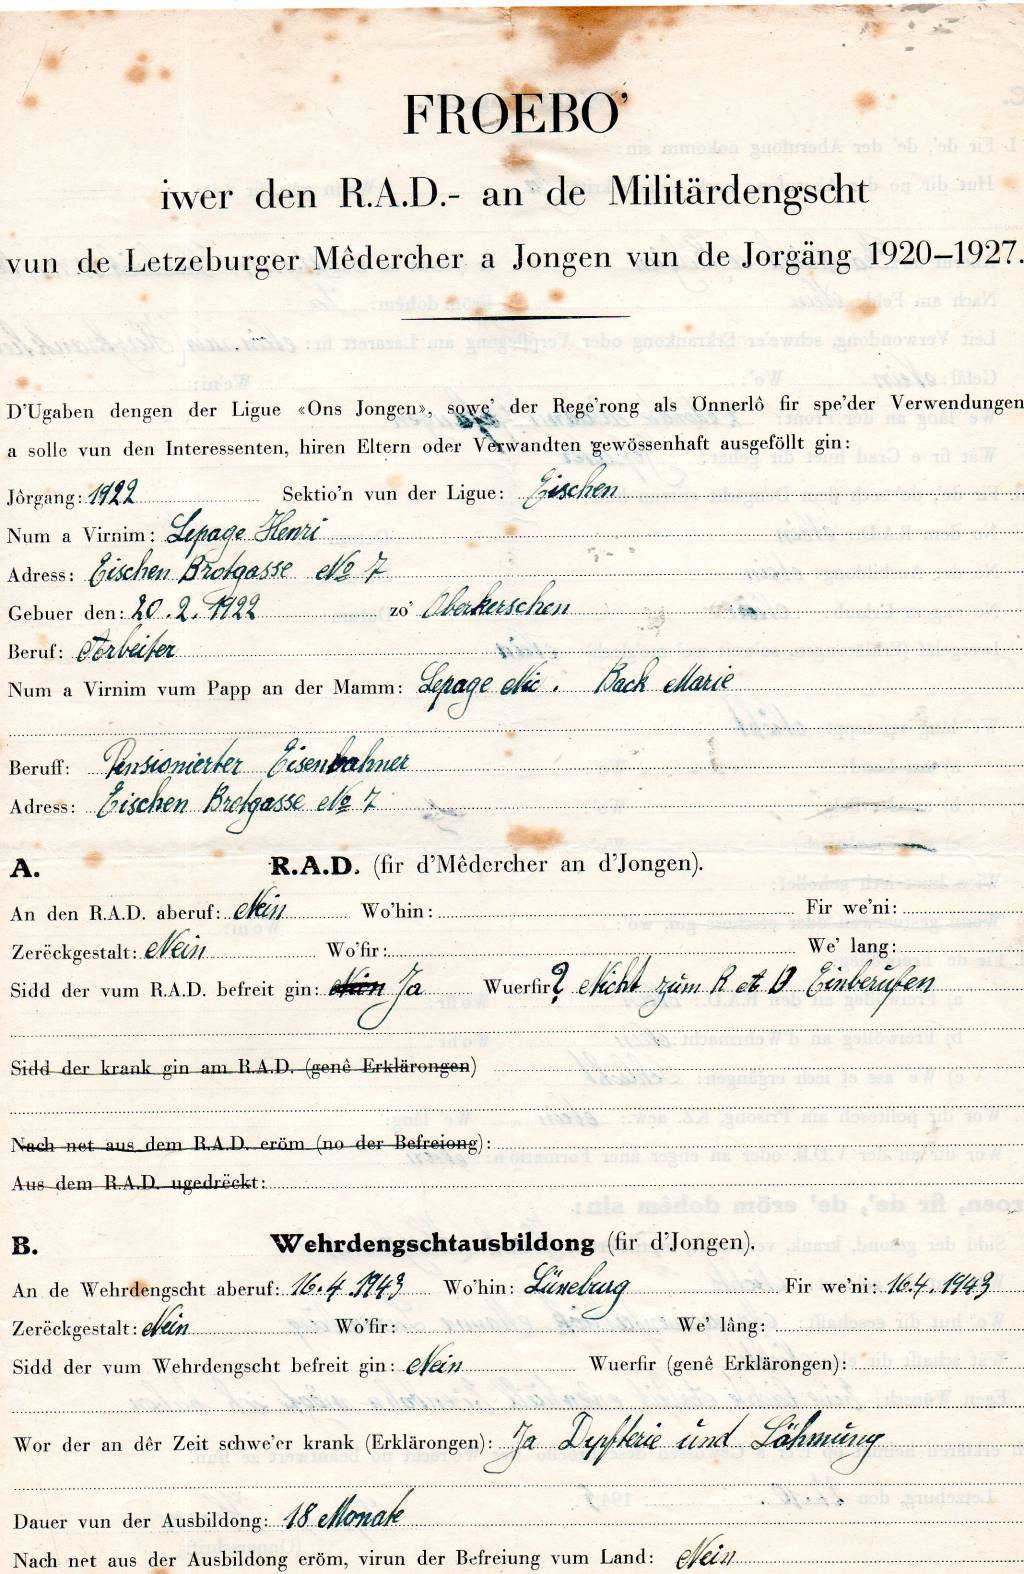 FROEBO'
iwer den R.A.D.- an de Militärdengscht
vun de Letzeburger Mêdercher a Jongen vun de Jorgäng 1920–1927.
D'Ugaben dengen der Ligue «Ons Jongen», sowe' der Rege'rong als Önnerlô fir spe'der Verwendungen
a solle vun den Interessenten, hiren Eltern oder Verwandten gewössenhaft ausgeföllt gin:
Jôrgang: 1922 Sektio'n vun der Ligue: Eischen
Num a Virnim: Lepage Henri
Adress: Eischen Brotgasse No 7
Gebuer den: 20.2.1922 zo' Oberkerschen
Beruf: Arbeiter
Num a Virnim vum Papp an der Mamm: Lepage Nic. Back Marie
Beruff: Pensionierter Eisenbahner
Adress: Eischen Brotgasse No 7
A. R.A.D. (fir d'Mêdercher an d'Jongen).
An den R.A.D. aberuf: Nein Wo'hin: Fir we'ni:
Zerëckgestalt: Nein Wo'fir: We' lang:
Sidd der vum R.A.D. befreit gin: Nein Ja Wuerfir? Nicht zum R A D Einberufen
Sidd der krank gin am R.A.D. (genê Erklärongen)
Nach net aus dem R.A.D. eröm (no der Befreiong):
Aus dem R.A.D. ugedrëckt:
B. Wehrdengschtausbildong (fir d'Jongen).
An de Wehrdengscht aberuf: 16.4.1943 Wo'hin: Lüneburg Fir we'ni: 16.4.1943
Zerëckgestalt: Nein Wo'fir: We' lâng:
Sidd der vum Wehrdengscht befreit gin: Nein Wuerfir (genê Erklärongen):
Wor der an dêr Zeit schwe'er krank (Erklärongen): Ja Dipfterie und Löhmung
Dauer vun der Ausbildong: 18 Monate
Nach net aus der Ausbildong eröm, virun der Befreiung vum Land: Nein